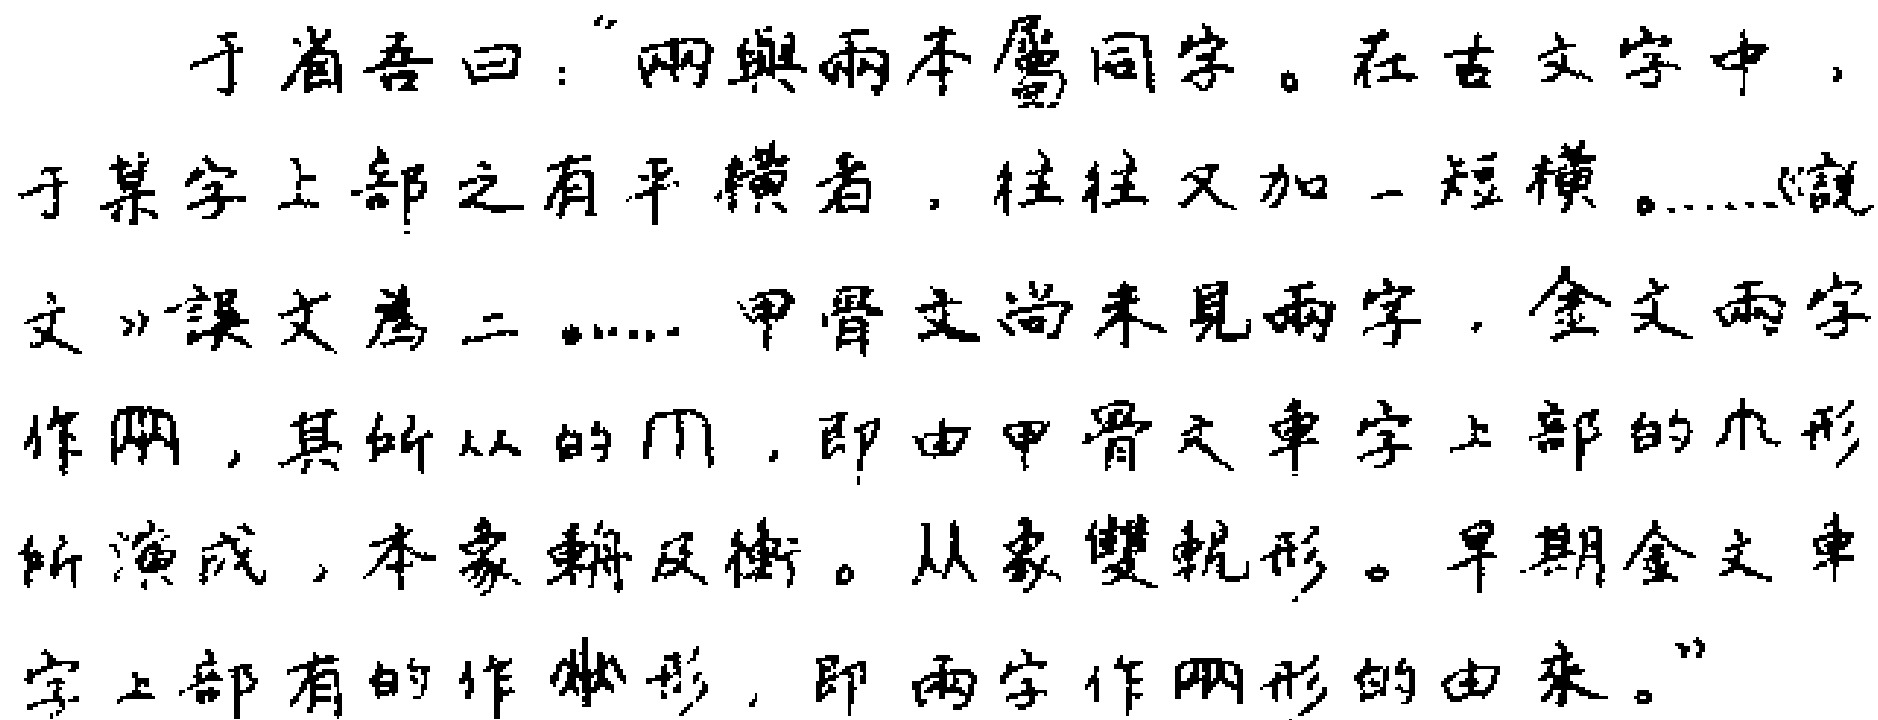 于省吾曰：“㒳與兩本屬同字。在古文字中，
于某字上部之有平橫者，往往又加一短橫。……《說
文》誤文爲二……甲骨文尚未見兩字，金文兩字
作㒳，其所从的，即由甲骨文車字上部的形
所演成，本象輈及衡。从象雙軛形。早期金文車
字上部有的作形，即兩字作㒳形的由來。”